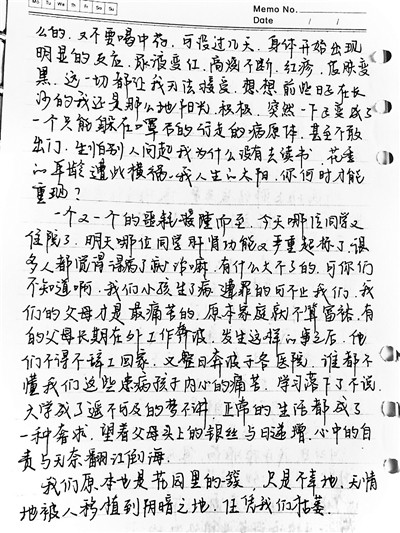 Mo Tu We Th Fr Sa Su
Memo No.
Date / /
么的，又不要喝中药，可没过几天，身体开始出现
明显的反应，尿液变红，高烧不断，红疹，皮肤变
黑，这一切都让我无法接受，想想前些日子在长
沙的我还是那么地阳光，积极，突然一下子变成了
一个只能躲在口罩后的行走的病原体，甚至不敢
出门，生怕别人问起我为什么没有去读书，花季
的年龄遭此横祸，我人生的太阳，你何时才能
重现？
一个又一个的噩耗接踵而至，今天哪位同学又
住院了，明天哪位同学肝肾功能又严重超标了，很
多人都觉得得病了就治嘛，有什么大不了的，可你们
不知道啊，我们小孩生了病，遭罪的可不止我们，我
们的父母才是最痛苦的，原本家庭就不算富裕，有
的父母长期在外工作奔波，发生这样的事之后，他
们不得不辞工回家，又整日奔波于各医院，谁都不
懂我们这些患病孩子内心的痛苦，学习落下了不说，
大学成了遥不可及的梦不讲，正常的生活都成了
一种奢求，望着父母头上的银丝与日递增，心中的自
责与无奈翻江倒海。
我们原本也是花园里的一簇，只是不幸地，无情
地被人移植到阴暗之地，任凭我们枯萎。